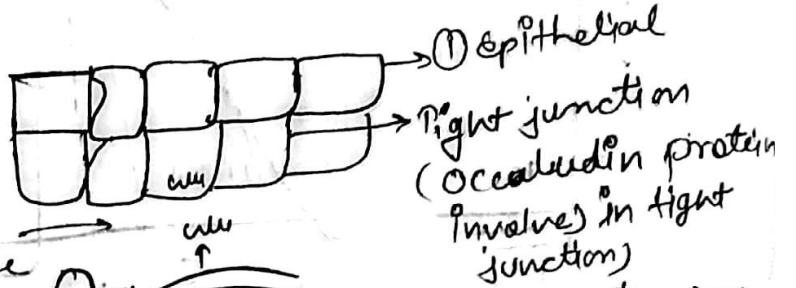 ① Epithelial
Tight junction
(Occaludin protein
involves in tight
junction)
cell
cell